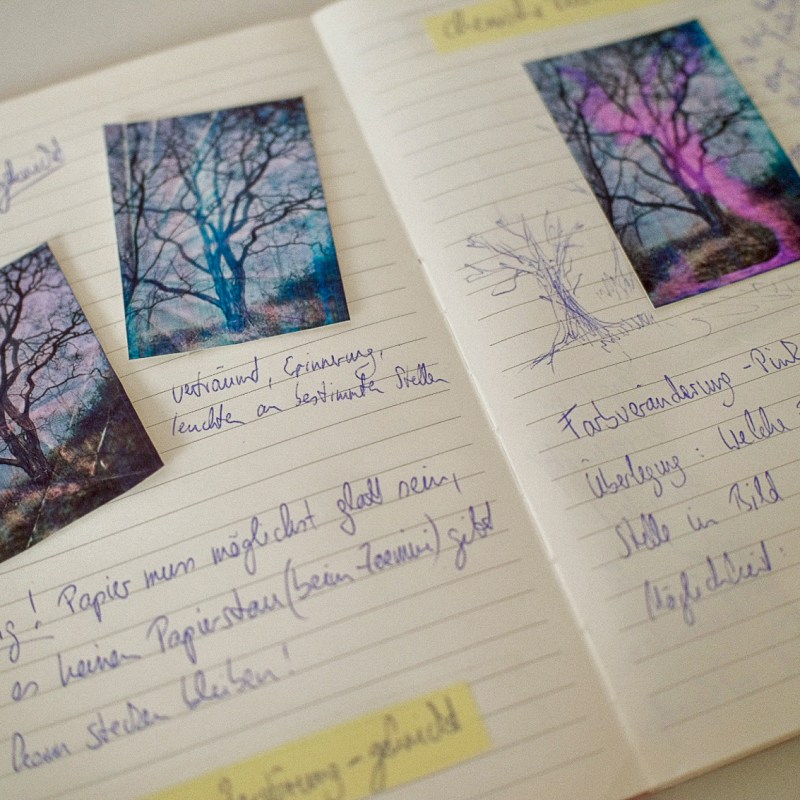 geknickt
verträumt, Erinnerung,
leuchten an bestimmten Stellen
! Papier muss möglichst glatt sein,
es keinen Papierstau (beim Zoemini) gibt
kann stecken bleiben!
- geknickt
chemische
Farbveränderung - Pink
Überlegung: Welche
Stelle im Bild
Möglichkeit: